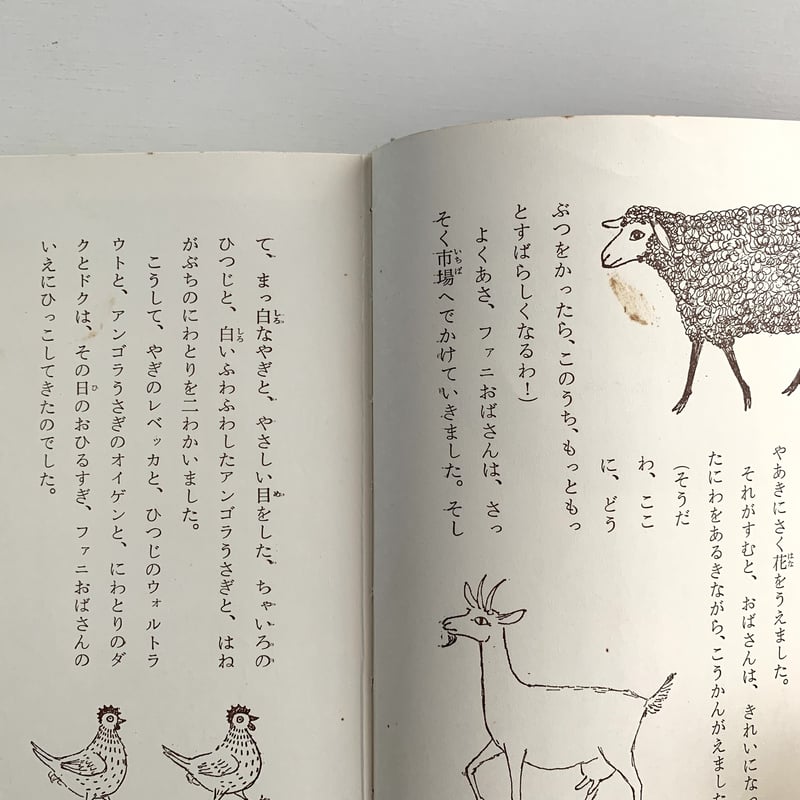 やあきにさく花をうえました。
それがすむと、おばさんは、きれいになっ
たにわをあるきながら、こうかんがえました
(そうだ
わ、ここ
に、どう
ぶつをかったら、このうち、もっともっ
とすばらしくなるわ!)
よくあさ、ファニおばさんは、さっ
そく市場へでかけていきました。そし
て、まっ白なやぎと、やさしい目をした、ちゃいろの
ひつじと、白いふわふわしたアンゴラうさぎと、はね
がぶちのにわとりを二わかいました。
こうして、やぎのレベッカと、ひつじのウォルトラ
ウトと、アンゴラうさぎのオイゲンと、にわとりのダ
クとドクは、その日のおひるすぎ、ファニおばさんの
いえにひっこしてきたのでした。